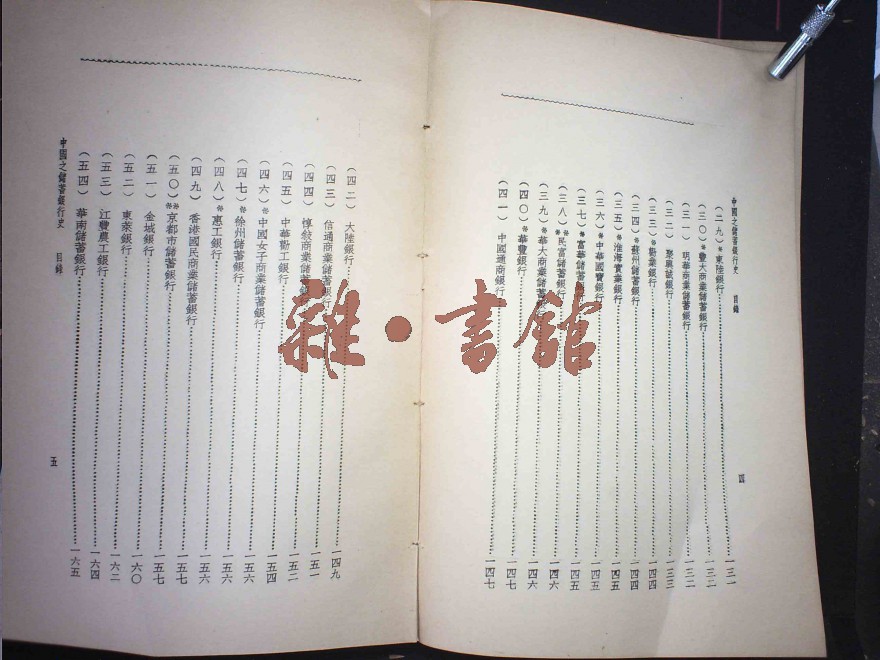 中國之儲蓄銀行史　目錄
(二九)*東陸銀行……一三一
(三〇)*豐大商業儲蓄銀行……一三二
(三一)明華商業儲蓄銀行……一三二
(三二)聚興誠銀行……一三三
(三三)*勸業銀行……一四四
(三四)*蘇州儲蓄銀行……一四四
(三五)*淮海實業銀行……一四五
(三六)*中華國寶銀行……一四五
(三七)*富華儲蓄銀行……一四五
(三八)**民富儲蓄銀行……一四六
(三九)*華大商業儲蓄銀行……一四六
(四〇)*華豐銀行……一四七
(四一)中國通商銀行……一四七
四
(四二)大陸銀行……一四九
(四三)信通商業儲蓄銀行……一五一
(四四)惇敘商業儲蓄銀行……一五二
(四五)中華勸工銀行……一五二
(四六)*中國女子商業儲蓄銀行……一五四
(四七)*徐州儲蓄銀行……一五六
(四八)*惠工銀行……一五六
(四九)香港國民商業儲蓄銀行……一五七
(五〇)**京都市儲蓄銀行……一五七
(五一)金城銀行……一六〇
(五二)東萊銀行……一六二
(五三)江豐農工銀行……一六四
(五四)華南儲蓄銀行……一六五
中國之儲蓄銀行史　目錄
五
雜·書館